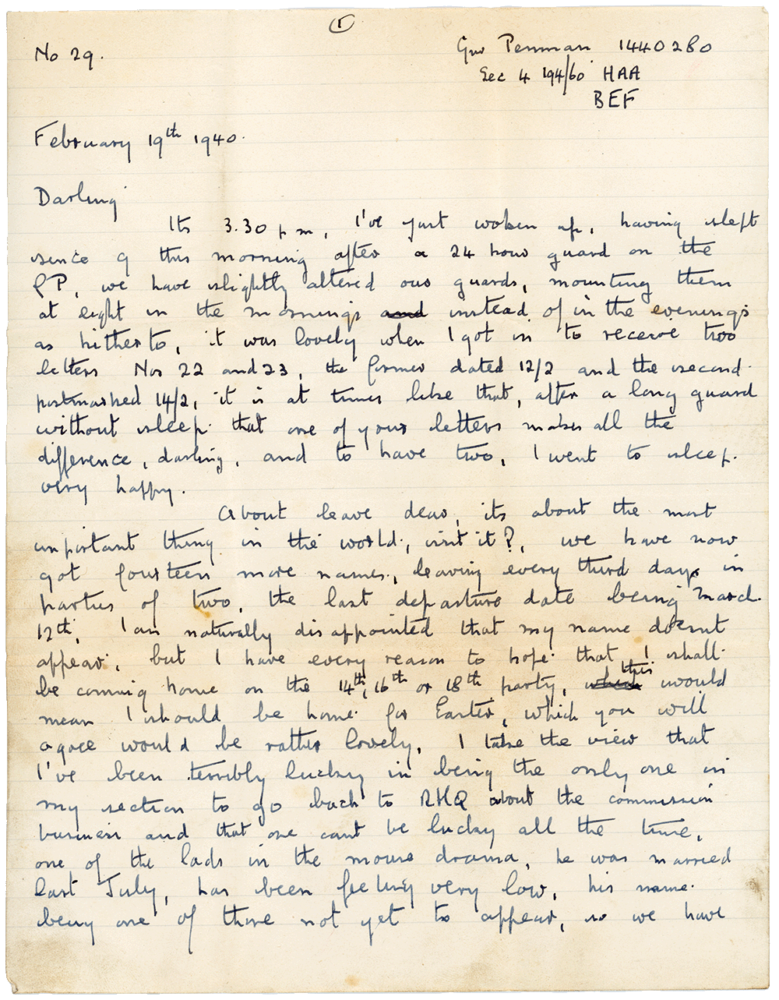 1
No 29.
Gnr Penman 1440280
Sec 4 194/60 HAA
BEF
February 19th 1940.
Darling
Its 3.30 pm, I've just woken up, having slept
since 9 this morning after a 24 hour guard on the
GP, we have slightly altered our guards, mounting them
at eight in the mornings and instead of in the evenings
as hitherto, it was lovely when I got in to receive two
letters Nos 22 and 23, the former dated 12/2 and the second
postmarked 14/2, it is at times like that, after a long guard
without sleep that one of your letters makes all the
difference, darling, and to have two, I went to sleep
very happy.
About leave dear, its about the most
important thing in the world, isnt it?, we have now
got fourteen more names, leaving every third day in
parties of two, the last departure date being March
12th, I am naturally disappointed that my name doesnt
appear, but I have every reason to hope that I shall
be coming home on the 14th, 16th or 18th party, which this would
mean I should be home for Easter, which you will
agree would be rather lovely, I take the view that
I've been terribly lucky in being the only one in
my section to go back to RHQ about the commission
business and that one cant be lucky all the time,
one of the lads in the mouse drama, he was married
last July, has been feeling very low, his name
being one of those not yet to appear, so we have